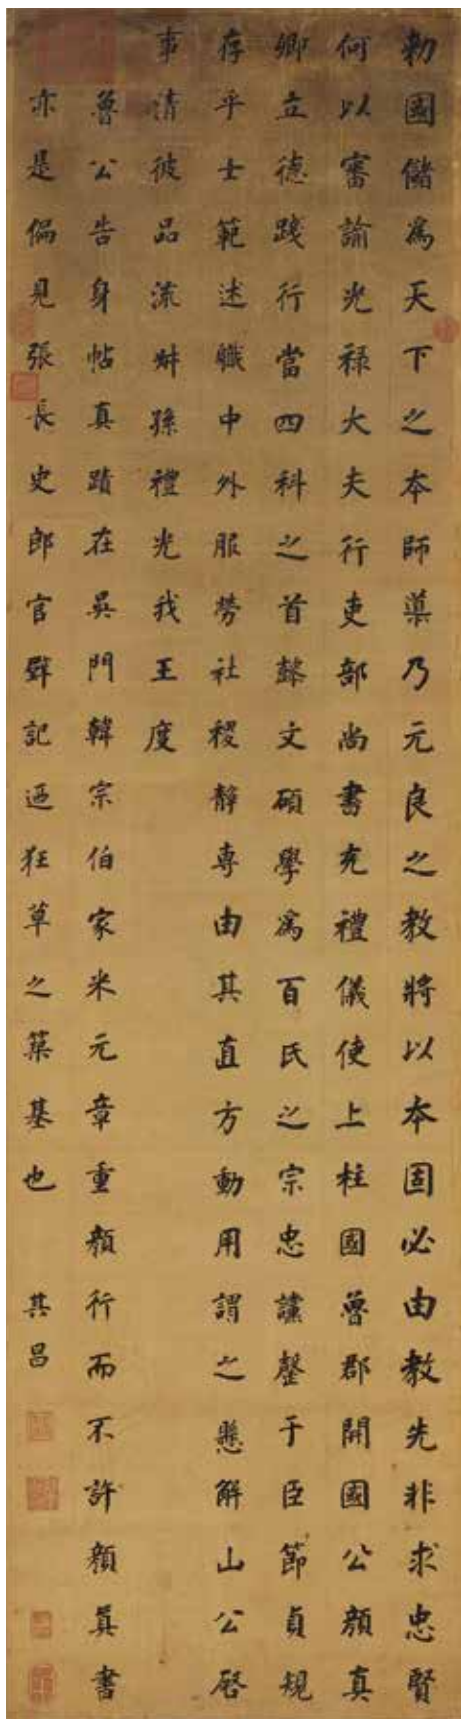 勅國儲爲天下之本師導乃元良之教將以本固必由教先非求忠賢
何以審諭光禄大夫行吏部尚書充禮儀使上柱國魯郡開國公顏真
卿立德踐行當四科之首懿文碩學爲百氏之宗忠讜罄于臣節貞規
存乎士範述職中外服勞社稷靜專由其直方動用謂之懸解山公啓
事清彼品流叔孫禮光我王度
魯公告身帖真蹟在吳門韓宗伯家米元章重顏行而不許顏真書
亦是偏見張長史郎官壁記迺狂草之築基也 其昌